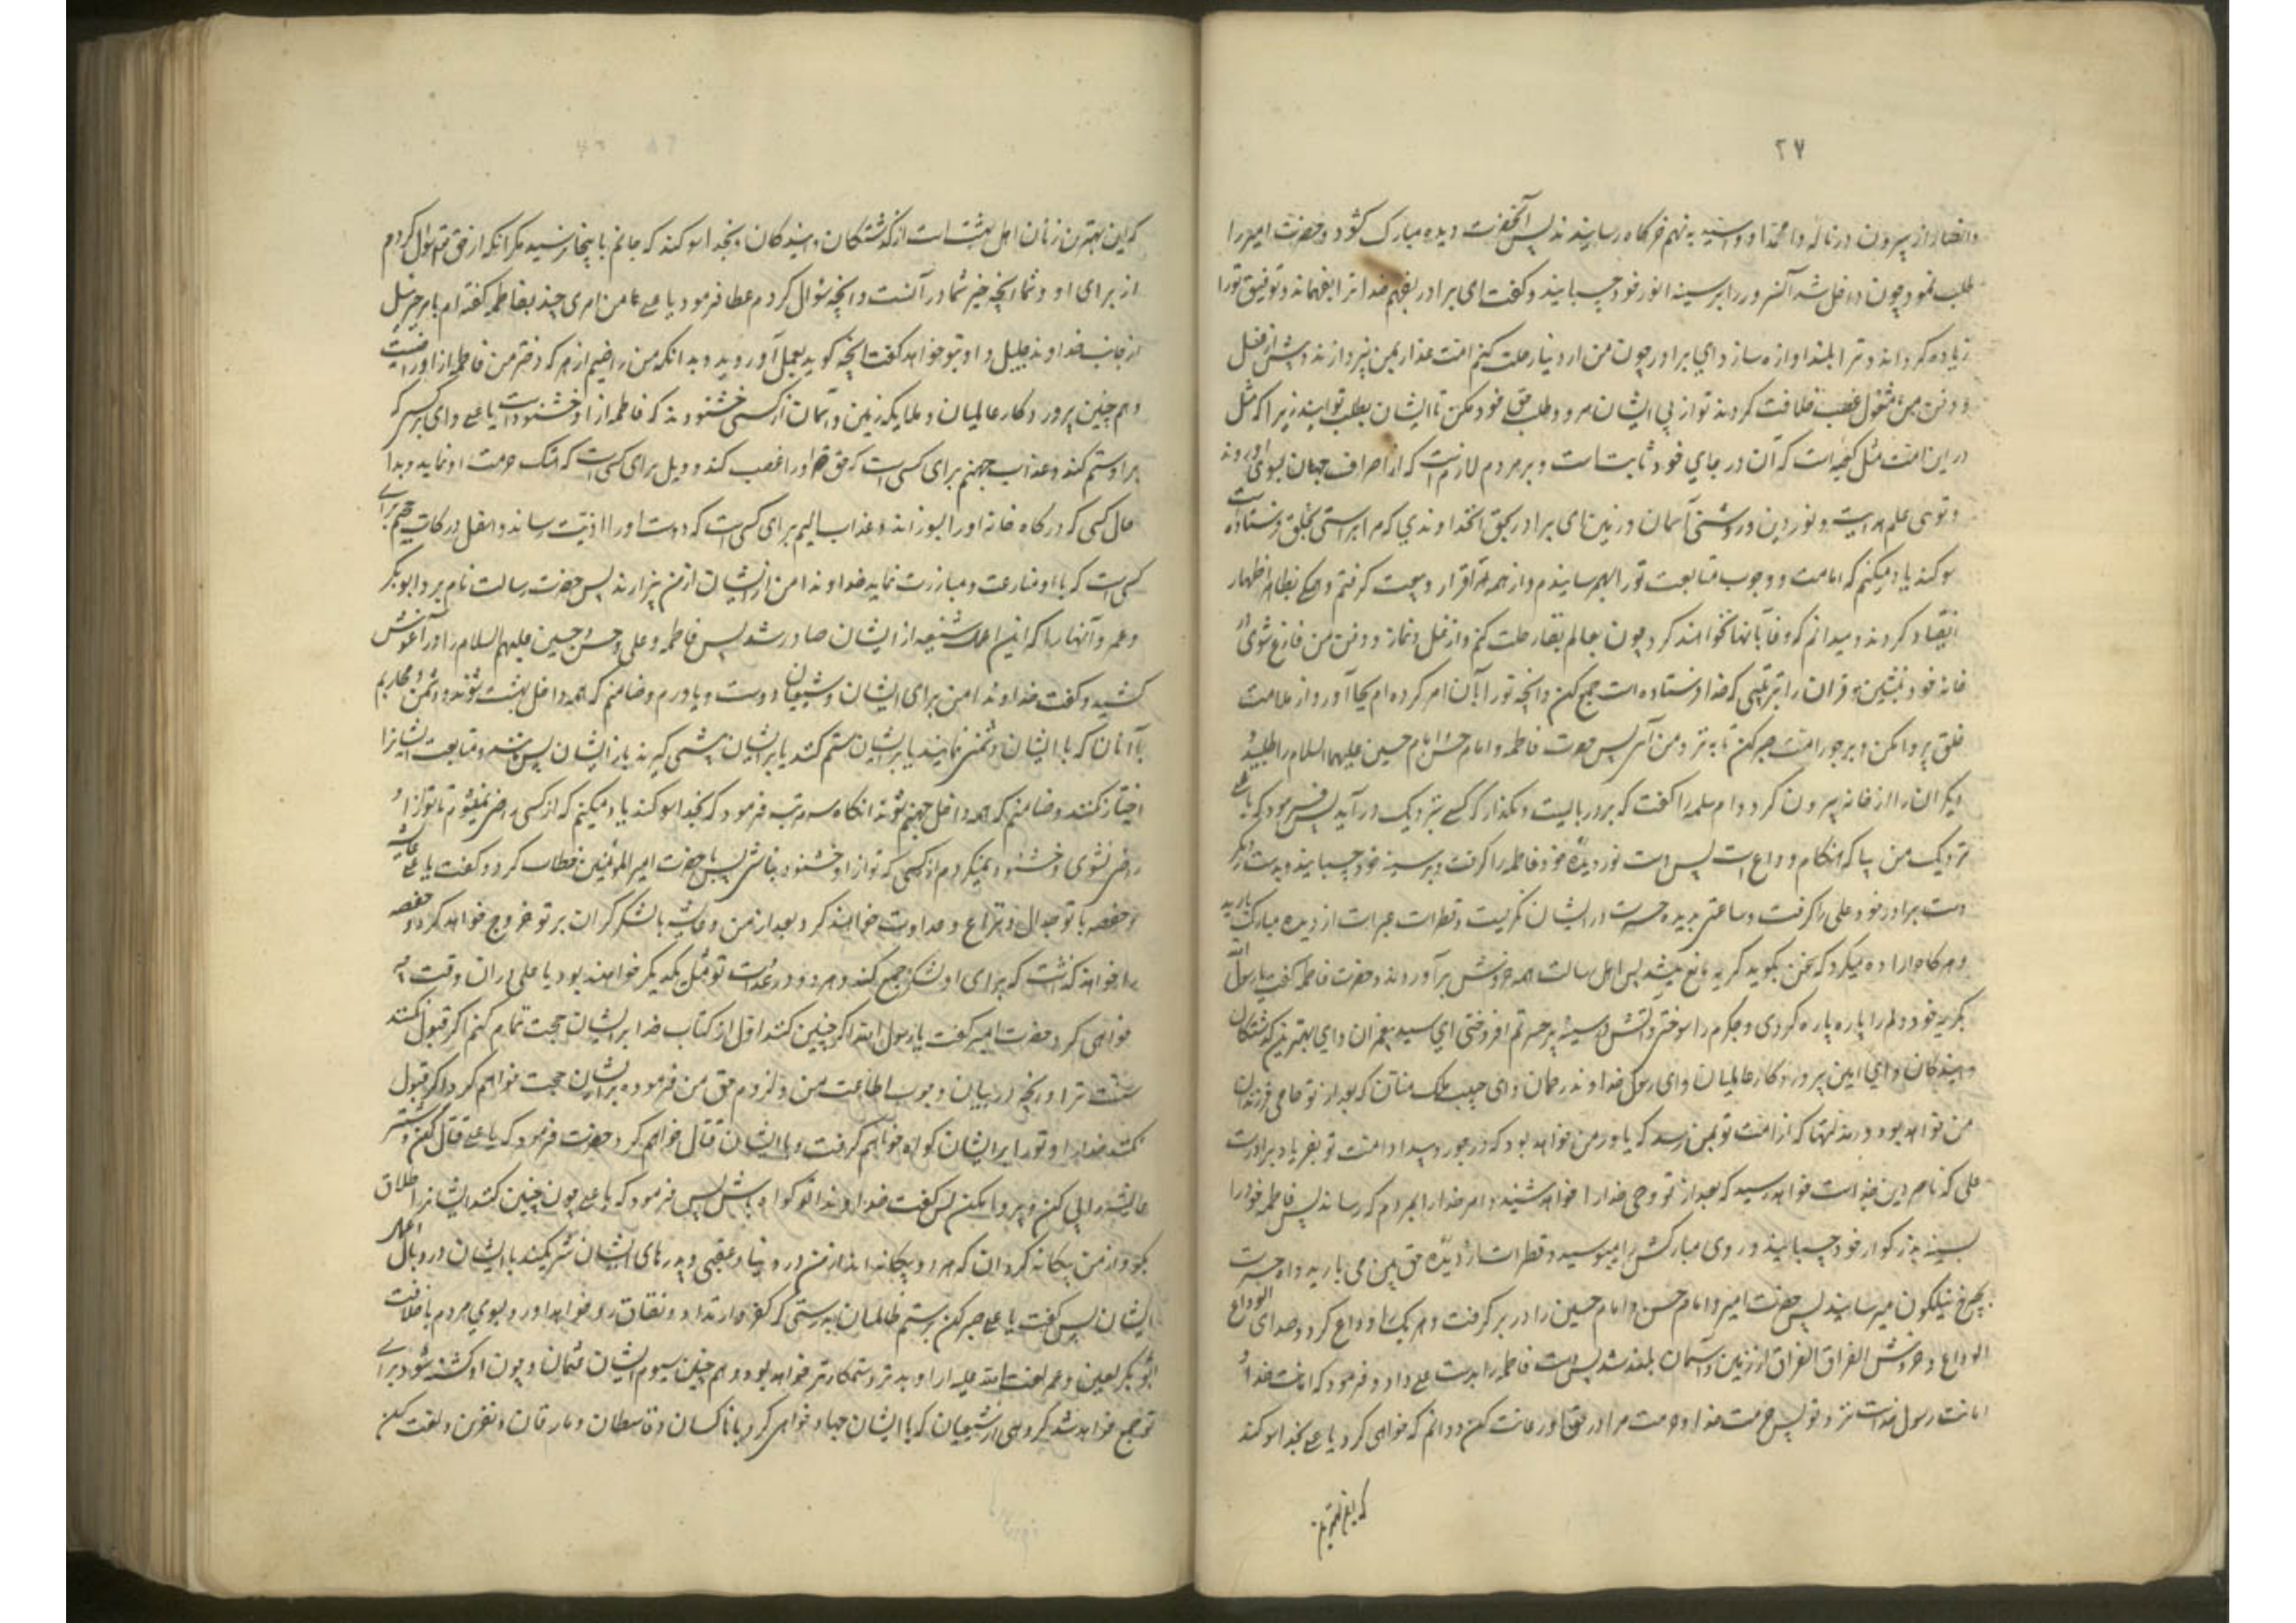 ۲۷
وانصار از بیرون در ناله وا محمداه و وا سیداه به نهم خرگاه رسانیدند پس آنحضرت دیده مبارک گشود و حضرت امیر را
طلب نمود چون داخل شد آنسرور را بر سینه انور خود چسبانید و گفت ای برادر بفهم خدا ترا بفهماند و توفیق تو را
زیاده گرداند و ترا بلند اوازه سازد ای برادر چون من از دنیا رحلت کنم امت غدار بمن نپردازند و پیش از غسل
و دفن من مشغول غصب خلافت گردند تو از پی ایشان مرو و طلب حق خود مکن تا ایشان بطلب تو ایند زیرا که مثل
در این امت مثل کعبه است که آن در جای خود ثابت است و بر مردم لازم است که از اطراف جهان بسوی او روند
و توئی علم هدایت و نور دین و روشنی آسمان و زمین ای برادر بحق انخداوندی که مرا براستی بخلق فرستاده است
سوگند یاد میکنم که امامت و وجوب متابعت تو را بهمه رسانیدم و از همه اقرار و بیعت گرفتم و همگی بظاهر اظهار
انقیاد کردند و میدانم که وفا بآنها نخواهند کرد چون بعالم بقا رحلت کنم و از غسل و نماز و دفن من فارغ شوی در
خانه خود بنشین و قران را بترتیبی که خدا فرستاده است جمع کن و انچه تو را بآن امر کرده ام بجا آور و از ملامت
خلق پروا مکن و بر جور امت صبر کن تا به نزد من آئی پس حضرت فاطمه و امام حسن و امام حسین علیهما السلام را طلبید و
دیگران را از خانه بیرون کرد و ام سلمه را گفت که بر در بایست و مگذار که کسی بنزدیک در آید پس فرمود که یا علی
نزدیک من بیا که هنگام وداع است پس دست نور دیده خود فاطمه را گرفت و بر سینه خود چسبانید و بدست دیگر
دست برادر خود علی را گرفت و ساعتی بدیده حسرت در ایشان نگریست و قطرات عبرات از دیده مبارک بارید
و هرگاه اراده میکرد که سخن بگوید گریه مانع میشد پس اهل رسالت همه خروش برآوردند و حضرت فاطمه گفت یا رسول الله
بگریه خود دلم را پاره پاره کردی و جگرم را سوختی و آتش در سینه پر حسرتم افروختی ای سید پیغمبران و ای بهترین گذشتگان
و آیندگان و ای امین پروردگار عالمیان و ای رسول خداوند رحمان و ای حبیب ملک منان که بعد از تو حامی فرزندان
من خواهد بود و در مذلتها که از امت تو بمن رسد که یاور من خواهد بود که در جور و بیداد امت تو بفریاد برادرت
علی که ناصر دین خداست خواهد رسید که بعد از تو وحی خدا را خواهد شنید و امر خدا را بمردم که رساند پس فاطمه خود را
بسینه بزرگوار خود چسبانید و روی مبارکش را میبوسید و قطرات از دیده حق بین می بارید و آه حسرت
بچرخ نیلگون میرسانید پس حضرت امیر و امام حسن و امام حسین را در بر گرفت و هر یک را وداع کرد و صدای الوداع
الوداع و خروش الفراق الفراق از زمین و آسمان بلند شد پس دست فاطمه را بدست علی داد و فرمود که امانت خدا و
امانت رسول خداست نزد تو پس حرمت خدا و حرمت مرا در حق او رعایت کن و دانم که خواهی کرد یا علی بخدا سوگند
که این بهترین
که این بهترین زنان اهل بهشت است از گذشتگان و آیندگان و بخدا سوگند که جانم باینجا نرسید مگر انکه از حق تعالی سؤال کردم
از برای او و شما انچه خیر شما در آنست و انچه سؤال کردم عطا فرمود یا علی من امری چند بفاطمه گفته ام بامر جبرئیل
از جانب خداوند جلیل و او بتو خواهد گفت انچه گوید بعمل آورید و بدانکه من راضیم از هر که دختر من فاطمه از او راضیست
و هم چنین پروردگار عالمیان و ملایکه زمین و آسمان از کسی خشنودند که فاطمه از او خشنود است یا علی وای بر کسی که
بر او ستم کند و عذاب جهنم برای کسی است که حق او را غصب کند و ویل برای کسی است که هتک حرمت او نماید و بدا
حال کسی که درگاه خانه او را بسوزاند و عذاب الیم برای کسی است که دوست او را اذیت رساند و اسفل درکات جحیم برای
کسی است که با او منازعت و مبارزت نماید خداوندا من از ایشان و ایشان از من بیزارند پس حضرت رسالت نام برد ابوبکر
و عمر و آنها را که این اعمال شنیعه از ایشان صادر شد پس فاطمه و علی و حسن و حسین علیهم السلام را در آغوش
کشید و گفت خداوندا من برای ایشان و شیعیان دوست و یاورم و ضامنم که همه داخل بهشت شوند و دشمن و محاربم
با آنان که با ایشان دشمنی نمایند یا بر ایشان ستم کنند یا بر ایشان پیشی گیرند یا از ایشان پس مانند و متابعت ایشانرا
اختیار نکنند و ضامنم که همه داخل جهنم شوند انگاه سه مرتبه فرمود که بخدا سوگند یاد میکنم که از کسی راضی نمیشوم تا تو از او
راضی نشوی و خشنود نمیگردم از کسی که تو از او خشنود نباشی پس با حضرت امیرالمؤمنین خطاب کرد و گفت یا علی عایشه
و حفصه با تو جدال و نزاع و عداوت خواهند کرد و بعد از من عایشه با لشکر گران بر تو خروج خواهد کرد و حفصه
را خواهد گذاشت که برای او لشکر جمع کند و هر دو در عداوت تو مثل یکدیگر خواهند بود یا علی در آن وقت چه
خواهی کرد حضرت امیر گفت یا رسول الله اگر چنین کنند اول از کتاب خدا بر ایشان حجت تمام کنم اگر قبول نکنند
سنت ترا و انچه در بیان وجوب اطاعت من و لزوم حق من فرموده بر ایشان حجت خواهم کرد و اگر قبول
نکنند خدا را و تو را بر ایشان گواه خواهم گرفت و با ایشان قتال خواهم کرد حضرت فرمود که یا علی قتال کن و شتر
عایشه را پی کن و پروا مکن پس گفت خداوندا تو گواه باش پس فرمود که یا علی چون چنین کنند ایشانرا طلاق
بگو و از من بیگانه گردان که هر دو بیگانه اند از من در دنیا و عقبی و پدرهای ایشان شریکند با ایشان در وبال اعمال
ایشان پس گفت یا علی صبر کن بر ستم ظالمان بدرستی که کفر و ارتداد و نفاق رو خواهد اورد بسوی مردم با خلافت
ابوبکر لعین و عمر لعنت الله علیه از او بدتر و ستمکارتر خواهد بود و هم چنین سیوم ایشان عثمان و چون او کشته شود برای
تو جمع خواهند شد گروهی از شیعیان که با ایشان جهاد خواهی کرد با ناکسان و قاسطان و مارقان و نفرین و لعنت کن